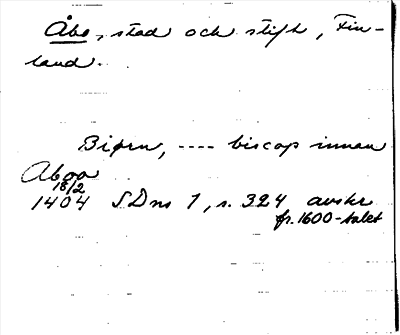 Åbo, stad och stift, Fin-
land.
Biørn, ---- biscop innan
Aboo
18/2
1404 SDns 1, s. 324 avskr
fr. 1600-talet